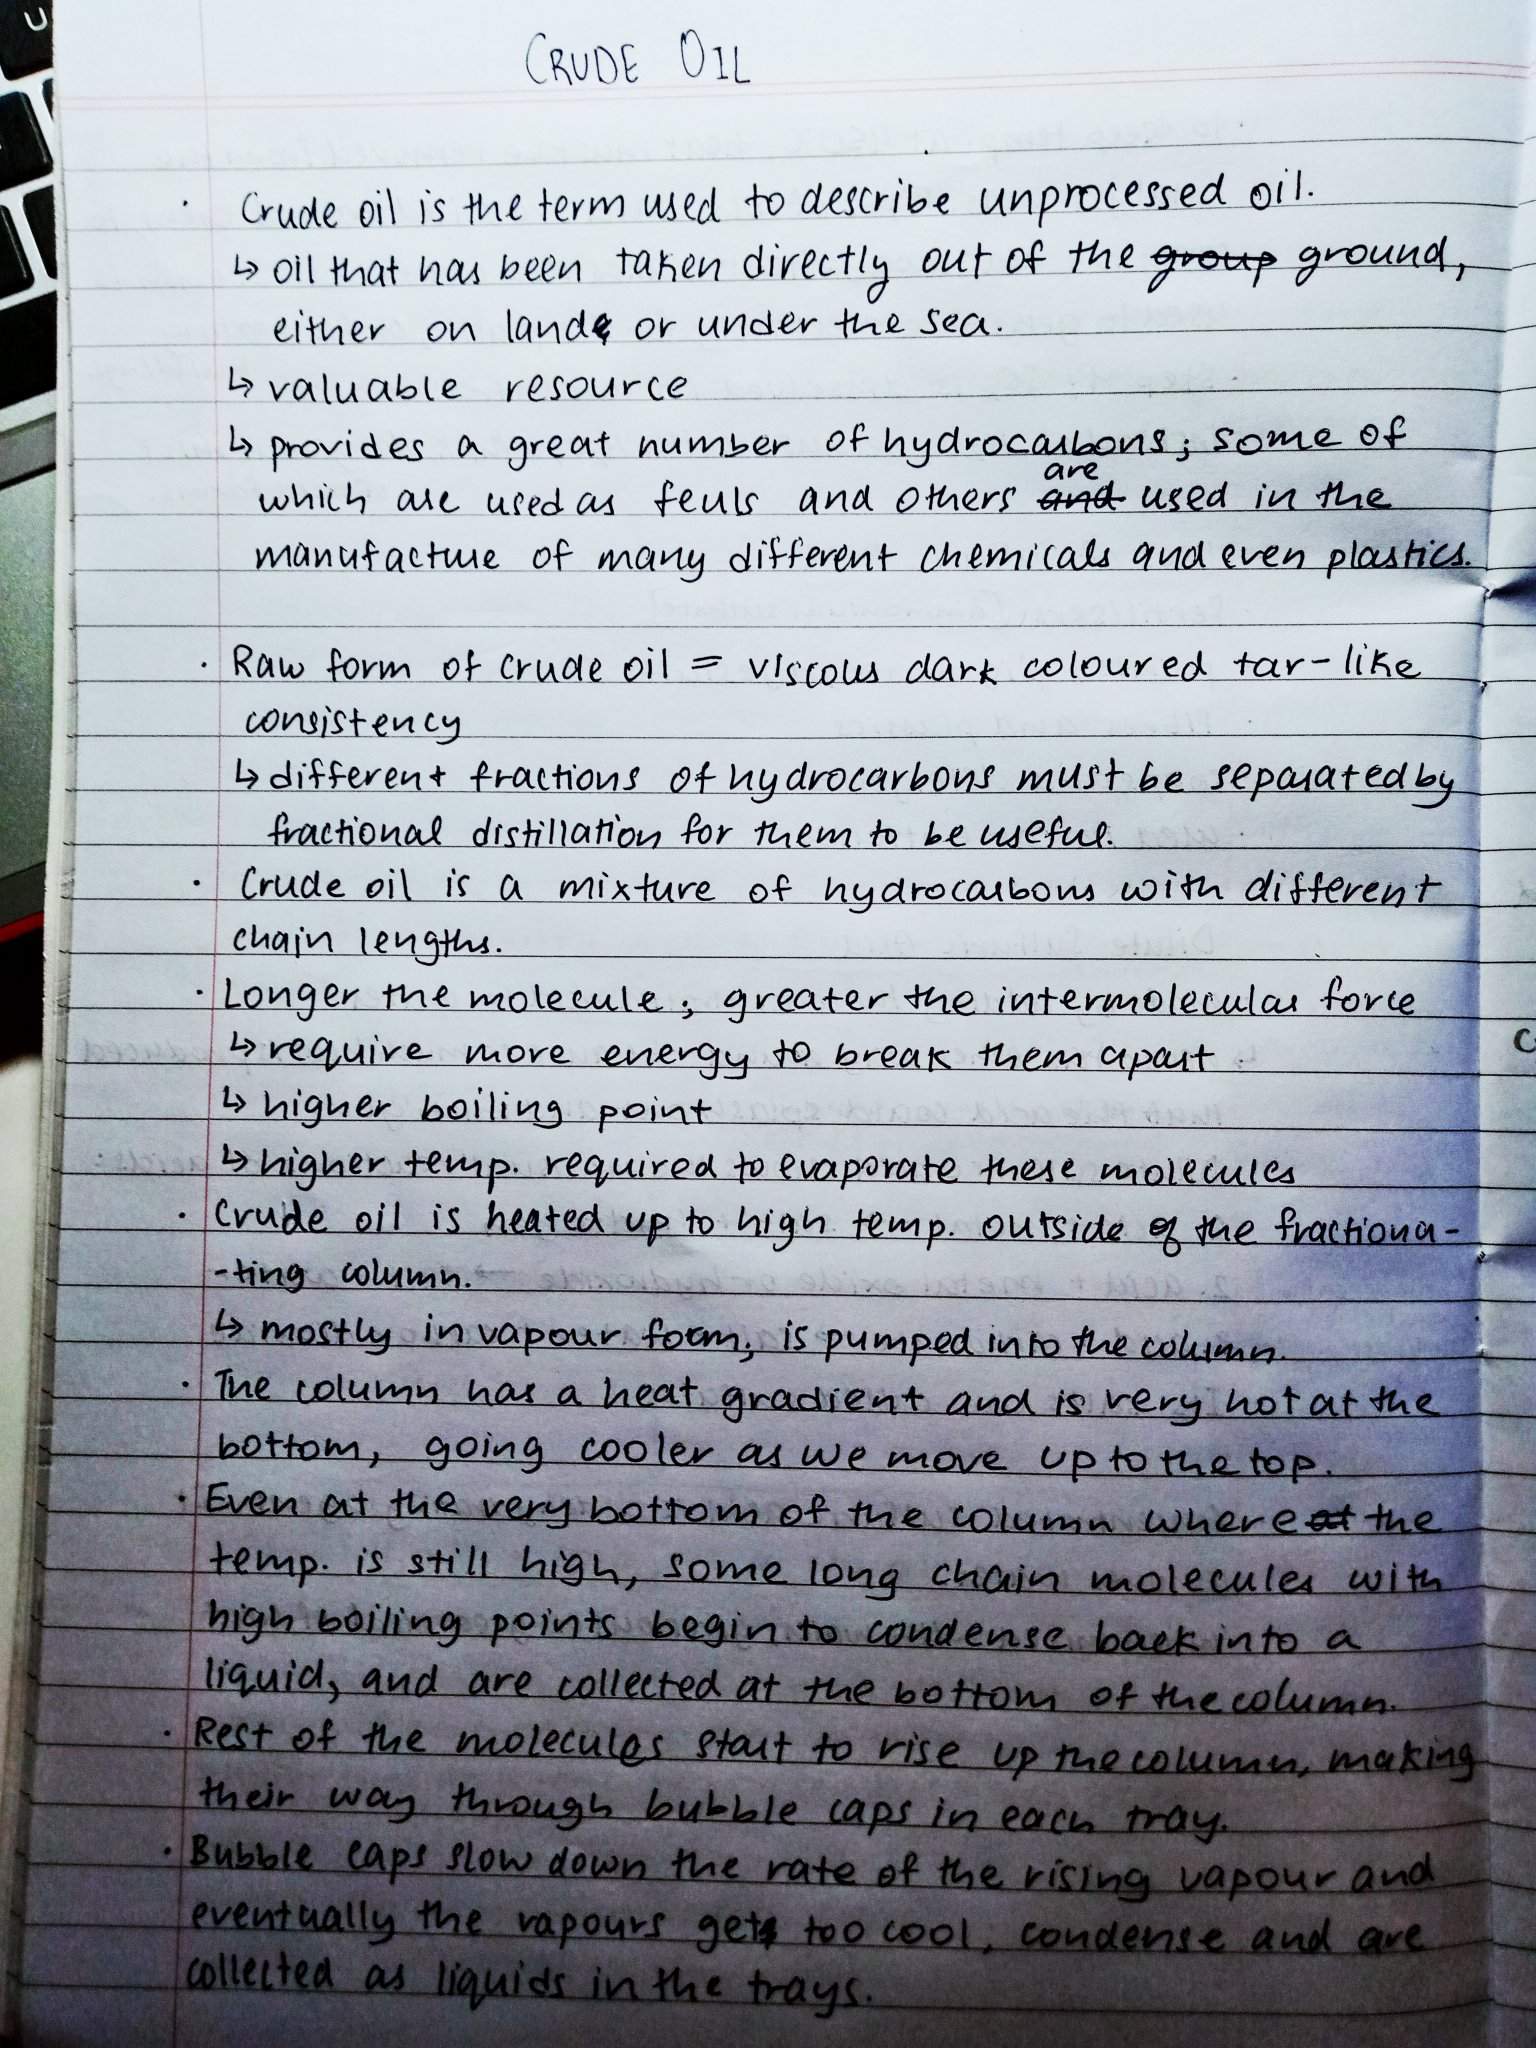 CRUDE OIL
· Crude oil is the term used to describe unprocessed oil.
↳ oil that has been taken directly out of the group ground,
either on land or under the sea.
↳ valuable resource
↳ provides a great number of hydrocarbons; some of
which are used as feuls and others and are used in the
manufacture of many different chemicals and even plastics.
· Raw form of crude oil = viscous dark coloured tar-like
consistency
↳ different fractions of hydrocarbons must be separated by
fractional distillation for them to be useful.
· Crude oil is a mixture of hydrocarbons with different
chain lengths.
· Longer the molecule; greater the intermolecular force
↳ require more energy to break them apart
↳ higher boiling point
↳ higher temp. required to evaporate these molecules
· Crude oil is heated up to high temp. outside of the fractiona-
-ting column.
↳ mostly in vapour form, is pumped into the column.
· The column has a heat gradient and is very hot at the
bottom, going cooler as we move up to the top.
· Even at the very bottom of the column where at the
temp. is still high, some long chain molecules with
high boiling points begin to condense back into a
liquid, and are collected at the bottom of the column.
· Rest of the molecules start to rise up the column, making
their way through bubble caps in each tray.
· Bubble caps slow down the rate of the rising vapour and
eventually the vapours get too cool, condense and are
collected as liquids in the trays.